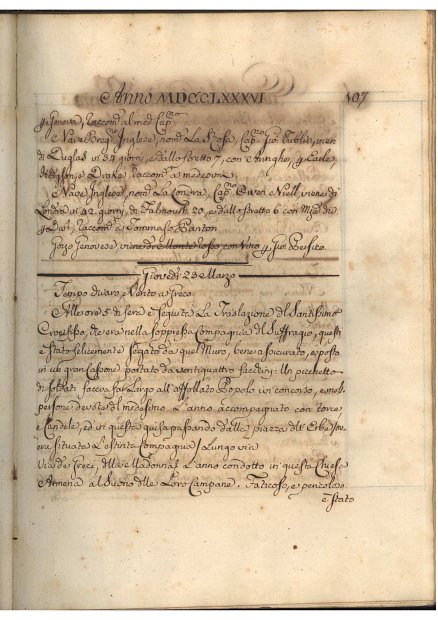 Anno MDCCLXXXVI 107
Genova, raccom. al med. Cap.no
Nave Inglese, nom. La Cap.no Gio.
di in 34 giorni, e dallo stretto 7, con
e Drake, raccom. a medesimi.
Nave Inglese, nom. La Cap.no Owen Niell, viene di
Londra in 42 giorni, di Falmouth 20, e dallo stretto 6 con
raccom. a Tommaso Panton
Gozo Genovese, viene di Monte Rosso, con Vino p Gio.
Giovedì 23 Marzo
Tempo Vento a Greco.
Alle ore 5 di sera è seguita La Traslazione del Santissimo
Crocifisso, che era nella soppressa Compagnia del Suffragio, questi
è stato felicemente segato da quel Muro, bene assicurato, e posto
in un gran Cassone portato da ventiquattro facchini: Un picchetto
di soldati faceva far Largo all'affollato Popolo in concorso, e mol.
persone devote del medesimo L'anno accompagniato con torce,
e Candele, ed in questa guisa passando dalla piazza dell' Erba, dov'
era situata L'estinta Compagnia / Lungo via
Via de Greci, della Madonna L'anno condotto in questa Chiesa
Armena al Suono delle Loro Campane. Faticoso, e pericoloso
è stato